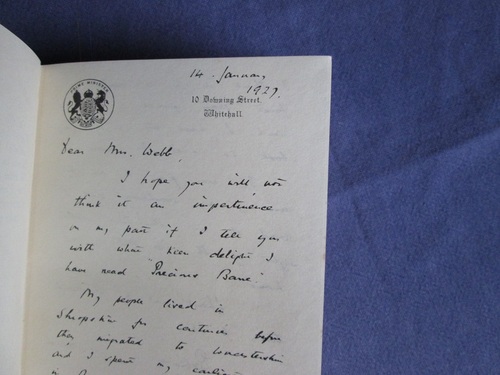 PRIME MINISTER
14. January
1927.
10 Downing Street.
Whitehall.
Dear Mrs. Webb,
I hope you will not
think it an impertinence
on my part if I tell you
with what keen delight I
have read "Precious Bane".
My people lived in
Shropshire for centuries before
they migrated to Worcestershire
and I spent my earliest